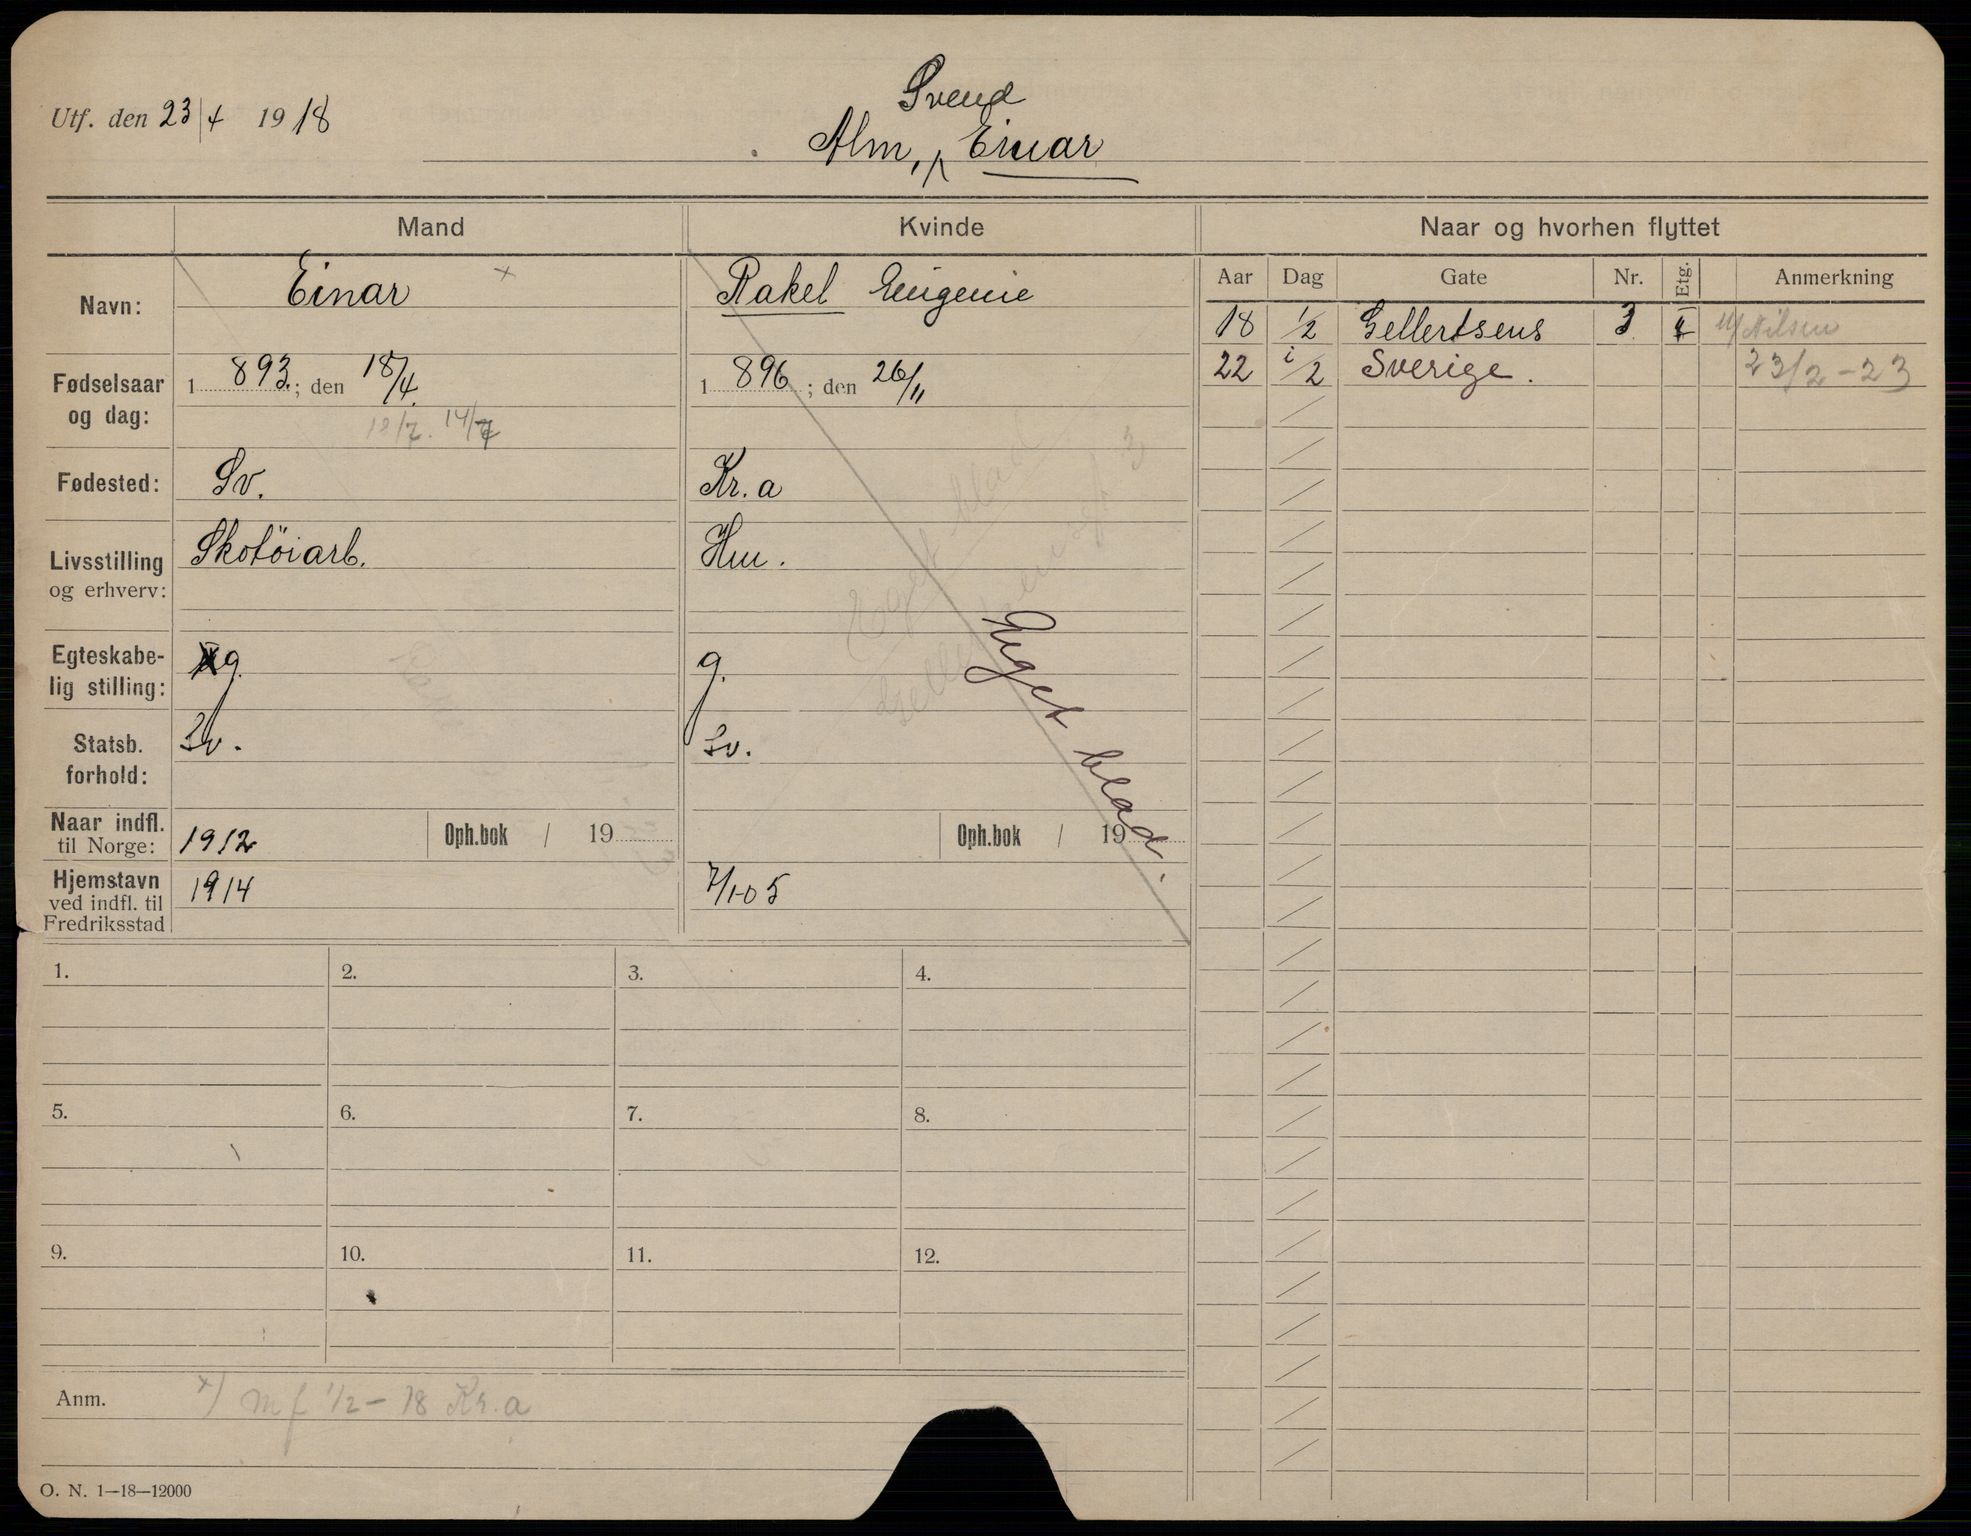 Utf. den 23/4 1918
Svend
Alm, Einar
Mand
Kvinde
Naar og hvorhen flyttet
Navn:
Einar ×
Rakel Eugenie
Aar Dag Gate Nr. Etg. Anmerkning
18 1/2 Gellertsens 3 Nilsen
22 1/2 Sverige. 23/2-23
Fødselsaar og dag:
1893; den 18/4.
1896; den 26/11
18/7. 14/7
Fødested:
Sv.
Kr.a
Livsstilling og erhverv:
Skotöiarb.
Hu.
Eget blad
Egteskabe-
lig stilling:
g.
g.
Eget blad.
Statsb. forhold:
Sv.
Sv.
Naar indfl. til Norge:
1912
Oph.bok / 19
Oph.bok / 19
Hjemstavn
ved indfl. til
Fredriksstad
1914
7/1-05
1. 2. 3. 4.
5. 6. 7. 8.
9. 10. 11. 12.
Anm. ×) m f 1/2-18 Kr.a
O. N. 1—18—12000